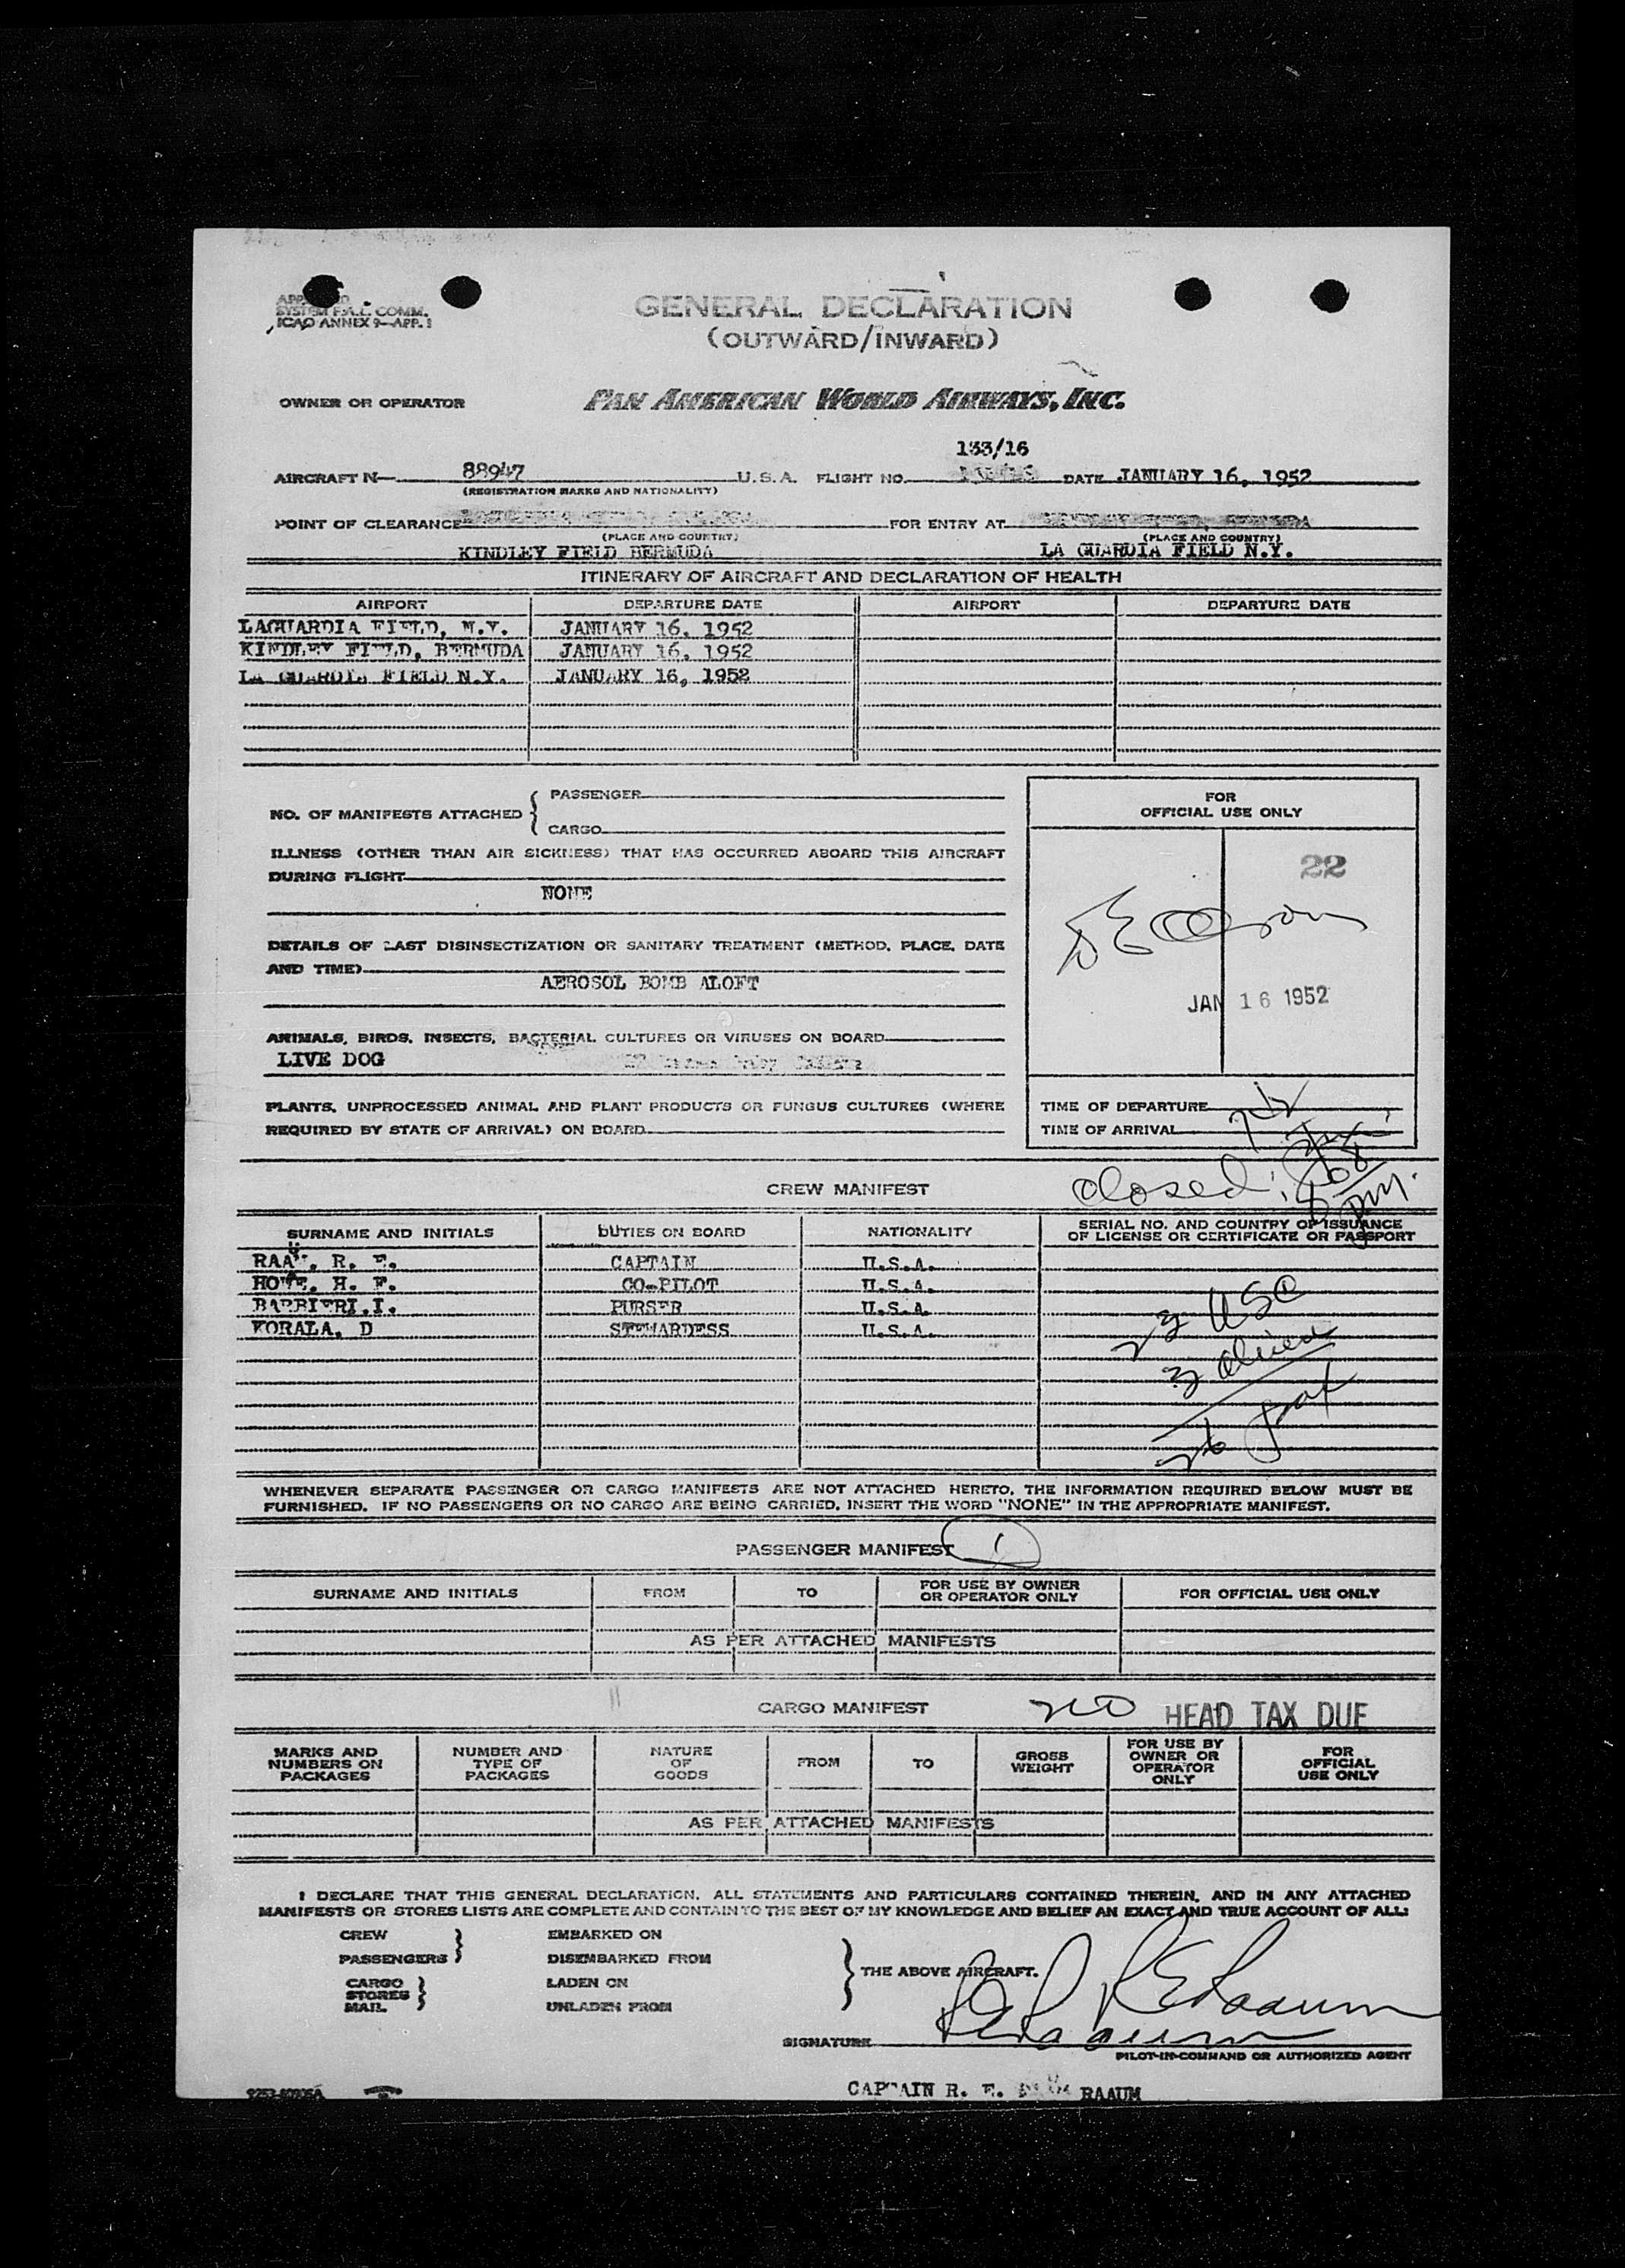 SYSTEM F.A.L. COMM.
ICAO ANNEX 9—APP. 1
GENERAL DECLARATION
(OUTWARD/INWARD)
OWNER OR OPERATOR PAN AMERICAN WORLD AIRWAYS, INC.
133/16
AIRCRAFT N— 88947 U.S.A. FLIGHT NO. DATE JANUARY 16, 1952
(REGISTRATION MARKS AND NATIONALITY)
POINT OF CLEARANCE FOR ENTRY AT
(PLACE AND COUNTRY) (PLACE AND COUNTRY)
KINDLEY FIELD BERMUDA LA GUARDIA FIELD N.Y.
ITINERARY OF AIRCRAFT AND DECLARATION OF HEALTH
AIRPORT DEPARTURE DATE AIRPORT DEPARTURE DATE
LAGUARDIA FIELD, N.Y. JANUARY 16, 1952
KINDLEY FIELD, BERMUDA JANUARY 16, 1952
LA GUARDIA FIELD N.Y. JANUARY 16, 1952
NO. OF MANIFESTS ATTACHED { PASSENGER
CARGO
FOR
OFFICIAL USE ONLY
22
JAN 16 1952
ILLNESS (OTHER THAN AIR SICKNESS) THAT HAS OCCURRED ABOARD THIS AIRCRAFT
DURING FLIGHT
NONE
DETAILS OF LAST DISINSECTIZATION OR SANITARY TREATMENT (METHOD, PLACE, DATE
AND TIME)
AEROSOL BOMB ALOFT
ANIMALS, BIRDS, INSECTS, BACTERIAL CULTURES OR VIRUSES ON BOARD
LIVE DOG
PLANTS, UNPROCESSED ANIMAL AND PLANT PRODUCTS OR FUNGUS CULTURES (WHERE
REQUIRED BY STATE OF ARRIVAL) ON BOARD
TIME OF DEPARTURE
TIME OF ARRIVAL
closed: pm.
CREW MANIFEST
SURNAME AND INITIALS DUTIES ON BOARD NATIONALITY SERIAL NO. AND COUNTRY OF ISSUANCE
OF LICENSE OR CERTIFICATE OR PASSPORT
R. E. CAPTAIN U.S.A.
H. F. CO-PILOT U.S.A.
BARBIERI, I. PURSER U.S.A.
KORALA, D STEWARDESS U.S.A.
23 USC
3 alien
26 pax
WHENEVER SEPARATE PASSENGER OR CARGO MANIFESTS ARE NOT ATTACHED HERETO, THE INFORMATION REQUIRED BELOW MUST BE
FURNISHED. IF NO PASSENGERS OR NO CARGO ARE BEING CARRIED, INSERT THE WORD "NONE" IN THE APPROPRIATE MANIFEST.
PASSENGER MANIFEST 1
SURNAME AND INITIALS FROM TO FOR USE BY OWNER
OR OPERATOR ONLY FOR OFFICIAL USE ONLY
AS PER ATTACHED MANIFESTS
CARGO MANIFEST no HEAD TAX DUE
MARKS AND
NUMBERS ON
PACKAGES
NUMBER AND
TYPE OF
PACKAGES
NATURE
OF
GOODS
FROM
TO
GROSS
WEIGHT
FOR USE BY
OWNER OR
OPERATOR
ONLY
FOR
OFFICIAL
USE ONLY
AS PER ATTACHED MANIFESTS
I DECLARE THAT THIS GENERAL DECLARATION, ALL STATEMENTS AND PARTICULARS CONTAINED THEREIN, AND IN ANY ATTACHED
MANIFESTS OR STORES LISTS ARE COMPLETE AND CONTAIN TO THE BEST OF MY KNOWLEDGE AND BELIEF AN EXACT AND TRUE ACCOUNT OF ALL:
CREW EMBARKED ON
PASSENGERS DISEMBARKED FROM
THE ABOVE AIRCRAFT.
CARGO LADEN ON
STORES
MAIL UNLADEN FROM
R E Raaum
SIGNATURE R E Raaum
PILOT-IN-COMMAND OR AUTHORIZED AGENT
CAPTAIN R. E. RAAUM